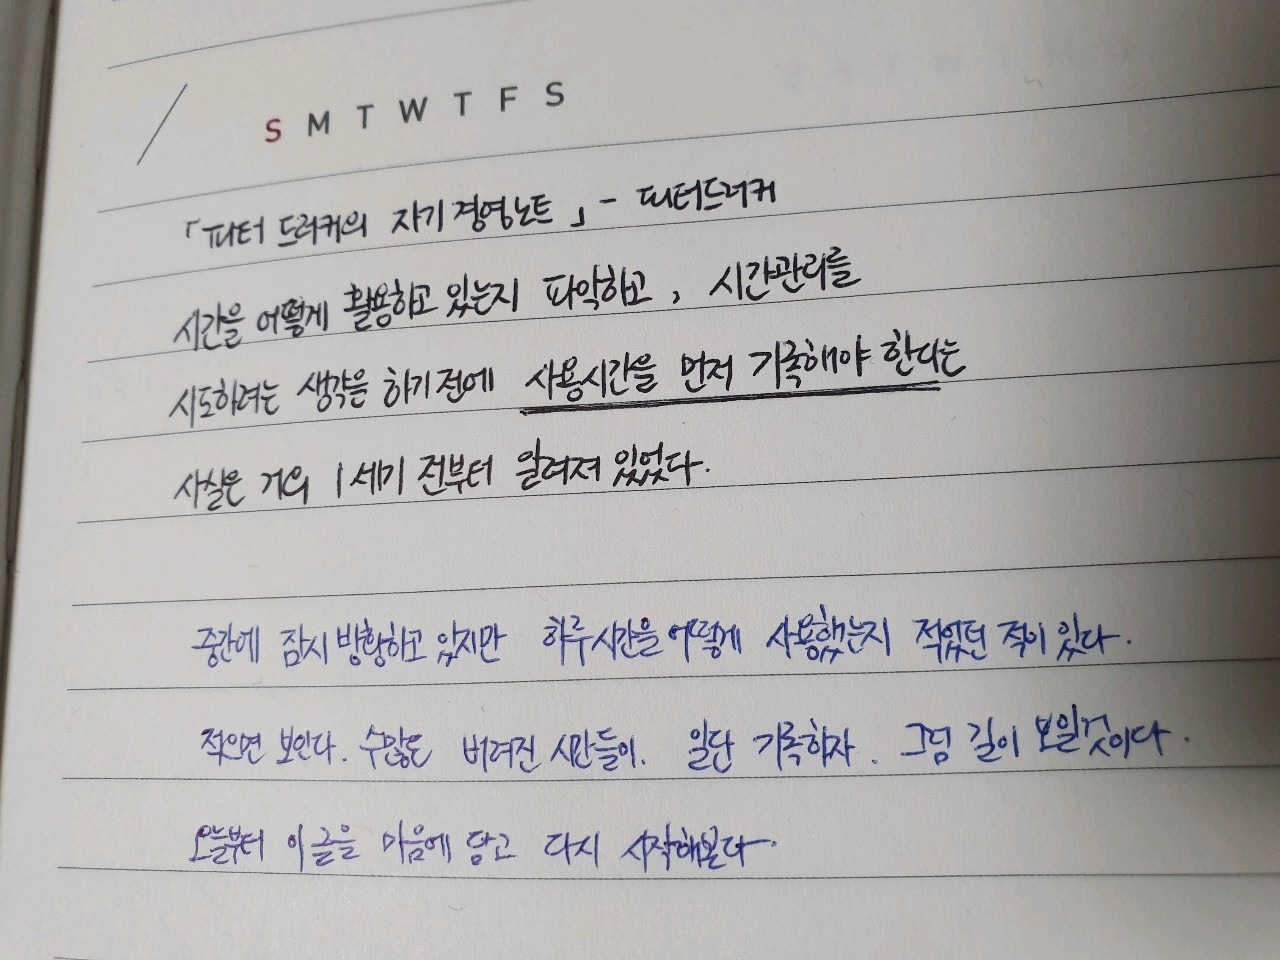 / S M T W T F S
「피터 드러커의 자기경영노트」 - 피터드러커
시간을 어떻게 활용하고 있는지 파악하고, 시간관리를
시도하려는 생각을 하기전에 사용시간을 먼저 기록해야 한다는
사실은 거의 1세기 전부터 알려져 있었다.
중간에 잠시 방황하고 있지만 하루시간을 어떻게 사용했는지 적었던 적이 있다.
적으면 보인다. 수많은 버려진 시간들이. 일단 기록하자. 그럼 길이 보일것이다.
오늘부터 이 글을 마음에 담고 다시 시작해본다.